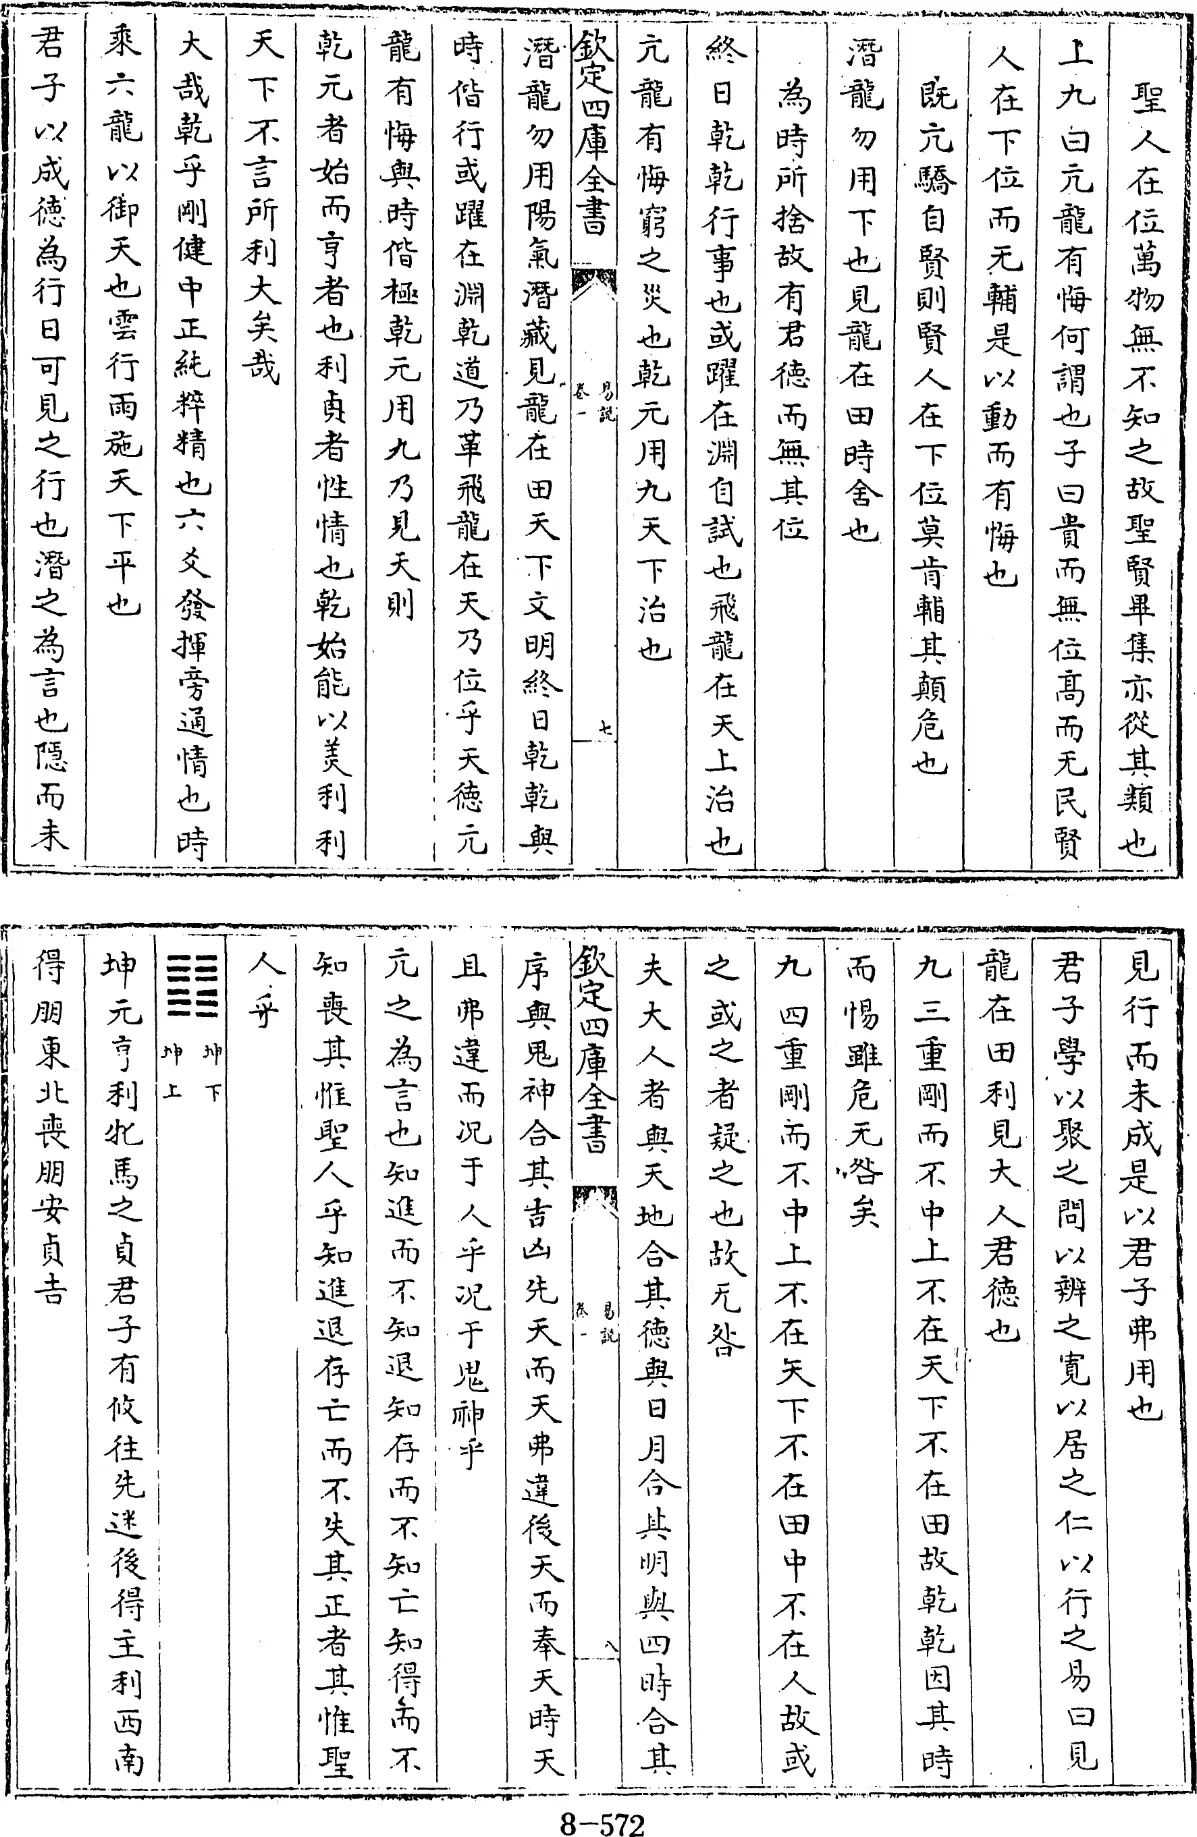 聖人在位萬物無不知之故聖賢畢集亦從其類也
上九曰亢龍有悔何謂也子曰貴而無位高而无民賢
人在下位而无輔是以動而有悔也
既亢驕自賢則賢人在下位莫肯輔其顛危也
潛龍勿用下也見龍在田時舍也
為時所捨故有君德而無其位
終日乾乾行事也或躍在淵自試也飛龍在天上治也
亢龍有悔窮之災也乾元用九天下治也
欽定四庫全書
易說
卷一
七
潛龍勿用陽氣潛藏見龍在田天下文明終日乾乾與
時偕行或躍在淵乾道乃革飛龍在天乃位乎天德亢
龍有悔與時偕極乾元用九乃見天則
乾元者始而亨者也利貞者性情也乾始能以美利利
天下不言所利大矣哉
大哉乾乎剛健中正純粹精也六爻發揮旁通情也時
乘六龍以御天也雲行雨施天下平也
君子以成德為行日可見之行也潛之為言也隱而未
見行而未成是以君子弗用也
君子學以聚之問以辨之寬以居之仁以行之易曰見
龍在田利見大人君德也
九三重剛而不中上不在天下不在田故乾乾因其時
而惕雖危无咎矣
九四重剛而不中上不在天下不在田中不在人故或
之或之者疑之也故无咎
夫大人者與天地合其德與日月合其明與四時合其
欽定四庫全書
易說
卷一
八
序與鬼神合其吉凶先天而天弗違後天而奉天時天
且弗違而况于人乎况于鬼神乎
亢之為言也知進而不知退知存而不知亡知得而不
知喪其惟聖人乎知進退存亡而不失其正者其惟聖
人乎
坤下
坤上
坤元亨利牝馬之貞君子有攸往先迷後得主利西南
得朋東北喪朋安貞吉
8-572